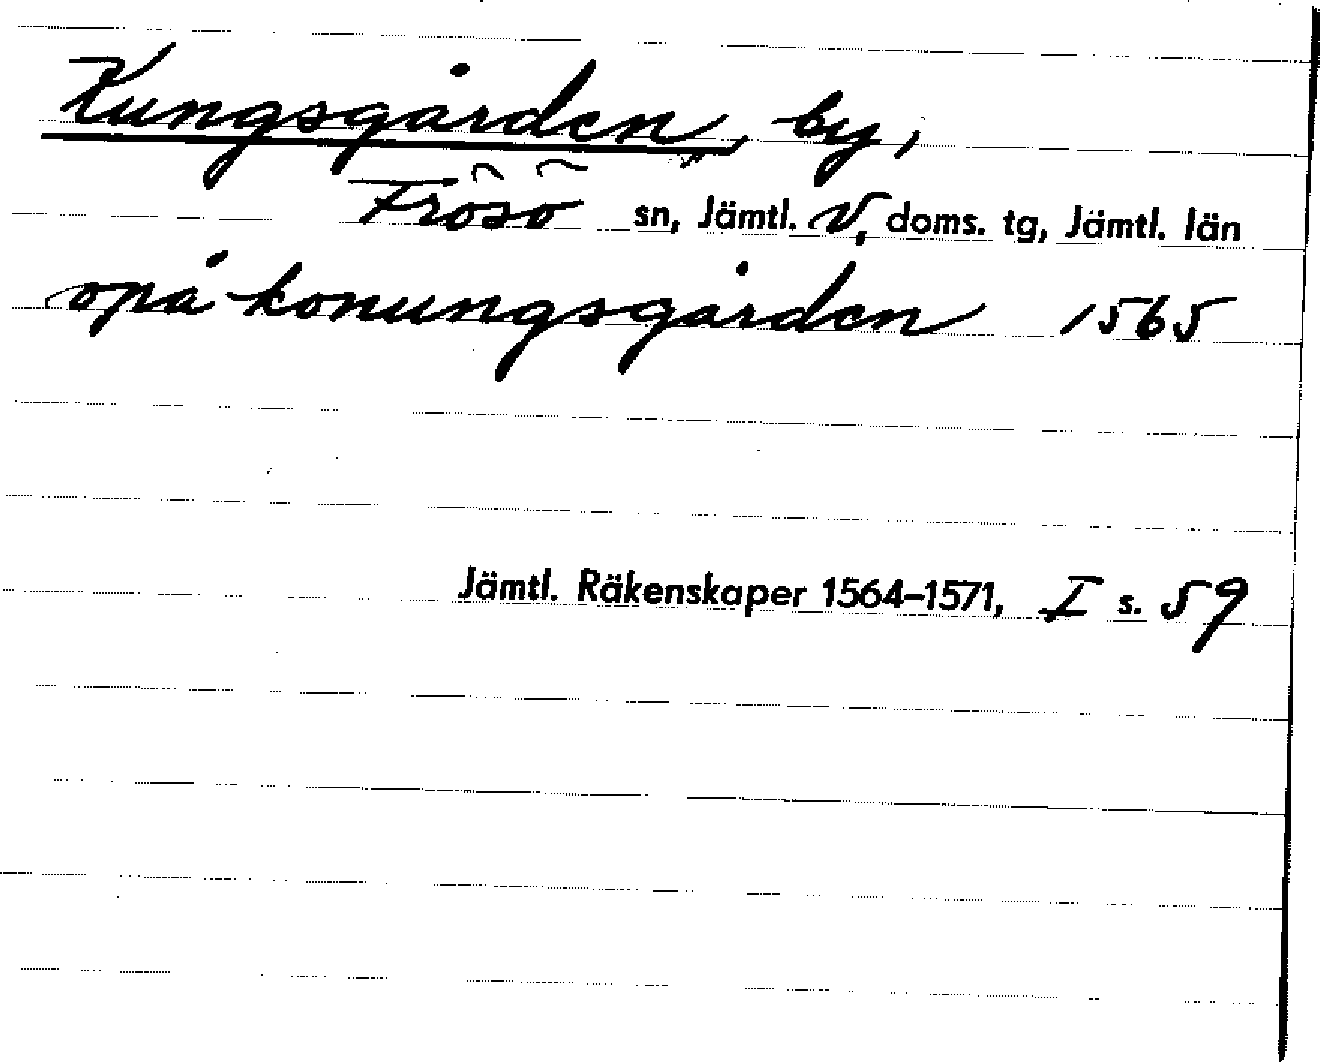 Kungsgården, by,
Frösö sn, Jämtl. V, doms. tg, Jämtl. län
opå konungsgården 1565
Jämtl. Räkenskaper 1564–1571, I s. 59